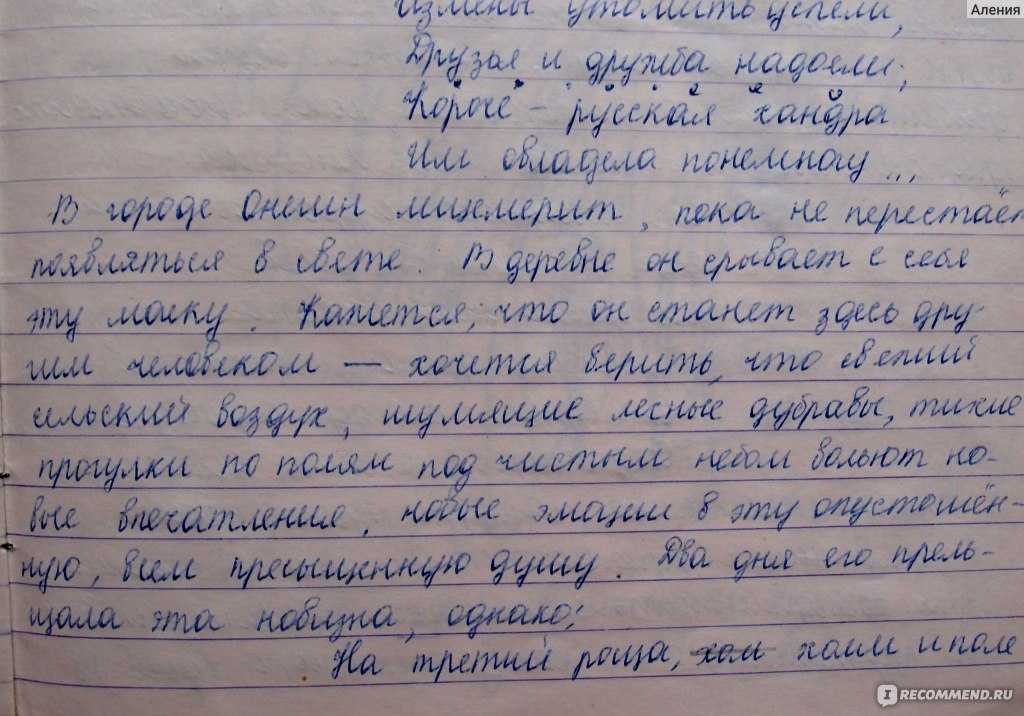 Аления
Измены утомить успели,
Друзья и дружба надоели;
Короче – русская хандра
Им овладела понемногу...
В городе Онегин лицемерит, пока не перестаёт
появляться в свете. В деревне он срывает с себя
эту маску. Кажется, что он станет здесь дру-
гим человеком — хочется верить, что свежий
сельский воздух, шумящие лесные дубравы, тихие
прогулки по полям под чистым небом вольют но-
вые впечатления, новые эмоции в эту опустошён-
ную, всем пресыщенную душу. Два дня его прель-
щала эта новизна, однако:
На третий роща, хол холм и поле
IRECOMMEND.RU